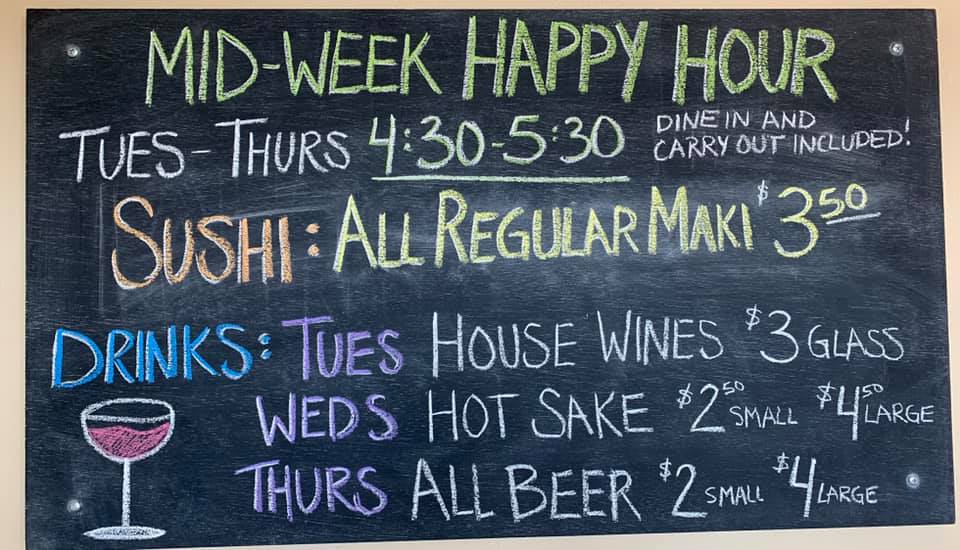 MID-WEEK HAPPY HOUR
TUES-THURS 4:30-5:30 DINE IN AND
CARRY OUT INCLUDED!
SUSHI: ALL REGULAR MAKI $3 50
DRINKS: TUES HOUSE WINES $3 GLASS
WEDS HOT SAKE $2 50 SMALL $4 50 LARGE
THURS ALL BEER $2 SMALL $4 LARGE